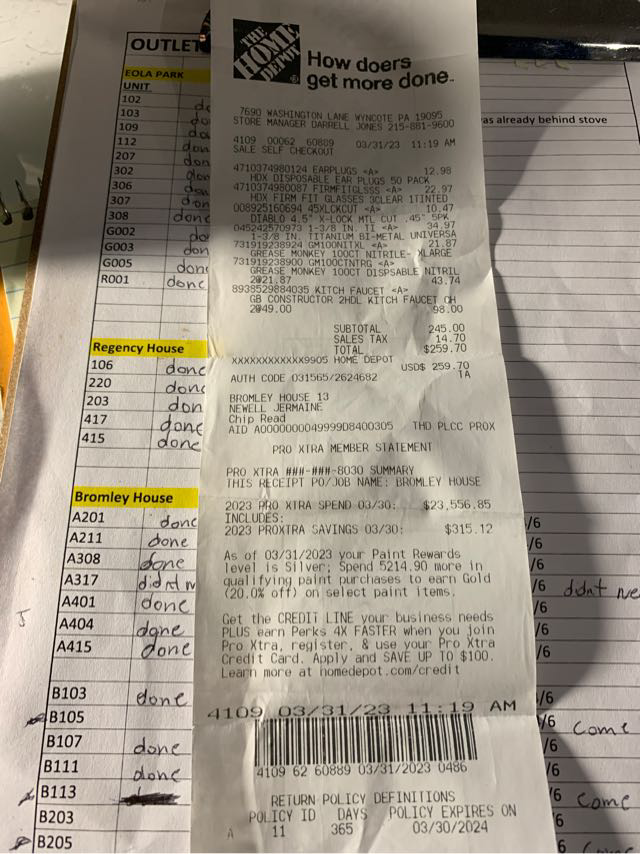 OUTLET
EOLA PARK
UNIT
102
103
109
112
207
302 don
306 don
307 done
308 done
G002
G003 don
G005 done
R001 done
Regency House
106 done
220 done
203 don
417 done
415 done
Bromley House
A201 done
A211 done
A308 done
A317 didnt n
A401 done
A404 done
A415 done
B103 done
B105
B107 done
B111 done
B113
B203
B205
THE HOME DEPOT
How doers
get more done.
7690 WASHINGTON LANE WYNCOTE PA 19095
STORE MANAGER DARRELL JONES 215-881-9600
4109 00062 60889 03/31/23 11:19 AM
SALE SELF CHECKOUT
4710374980124 EARPLUGS <A> 12.98
HDX DISPOSABLE EAR PLUGS 50 PACK
4710374980087 FIRMFITGLSSS <A> 22.97
HDX FIRM FIT GLASSES 3CLEAR 1TINTED
008925160694 45XLCKCUT <A> 10.47
DIABLO 4.5" X-LOCK MTL CUT .45" 5PK
045242570973 1-3/8 IN. TI <A> 34.97
1-3/8 IN. TITANIUM BI-METAL UNIVERSA
731919238924 GM100NITXL <A> 21.87
GREASE MONKEY 100CT NITRILE- XLARGE
731919238900 GM100CTNTRG <A>
GREASE MONKEY 100CT DISPSABLE NITRIL
2@21.87 43.74
8938529884035 KITCH FAUCET <A>
GB CONSTRUCTOR 2HDL KITCH FAUCET CH
2@49.00 98.00
SUBTOTAL 245.00
SALES TAX 14.70
TOTAL $259.70
XXXXXXXXXXXX9905 HOME DEPOT
USD$ 259.70
AUTH CODE 031565/2624682 TA
BROMLEY HOUSE 13
NEWELL JERMAINE
Chip Read
AID A0000000049999D8400305 THD PLCC PROX
PRO XTRA MEMBER STATEMENT
PRO XTRA ###-###-8030 SUMMARY
THIS RECEIPT PO/JOB NAME: BROMLEY HOUSE
2023 PRO XTRA SPEND 03/30: $23,556.85
INCLUDES:
2023 PROXTRA SAVINGS 03/30: $315.12
As of 03/31/2023 your Paint Rewards
level is Silver; Spend 5214.90 more in
qualifying paint purchases to earn Gold
(20.0% off) on select paint items.
Get the CREDIT LINE your business needs
PLUS earn Perks 4X FASTER when you join
Pro Xtra, register, & use your Pro Xtra
Credit Card. Apply and SAVE UP TO $100.
Learn more at homedepot.com/credit
4109 03/31/23 11:19 AM
4109 62 60889 03/31/2023 0486
RETURN POLICY DEFINITIONS
POLICY ID DAYS POLICY EXPIRES ON
A 11 365 03/30/2024
was already behind stove
/6
/6
/6 didnt ne
/6
/6
/6
/6 Come
/6
/6 Come
6